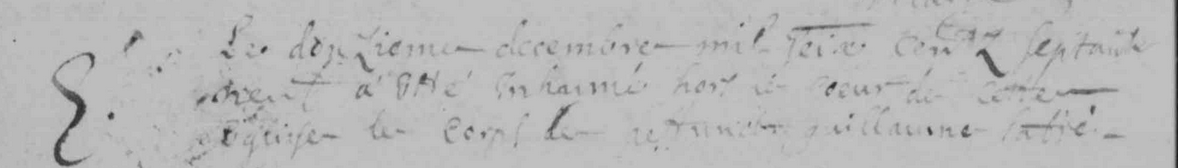 Le douzieme decembre mil seix centz septante
neuf a este inhumé hors le coeur de cette
eglise le corps de deffunct guillaume